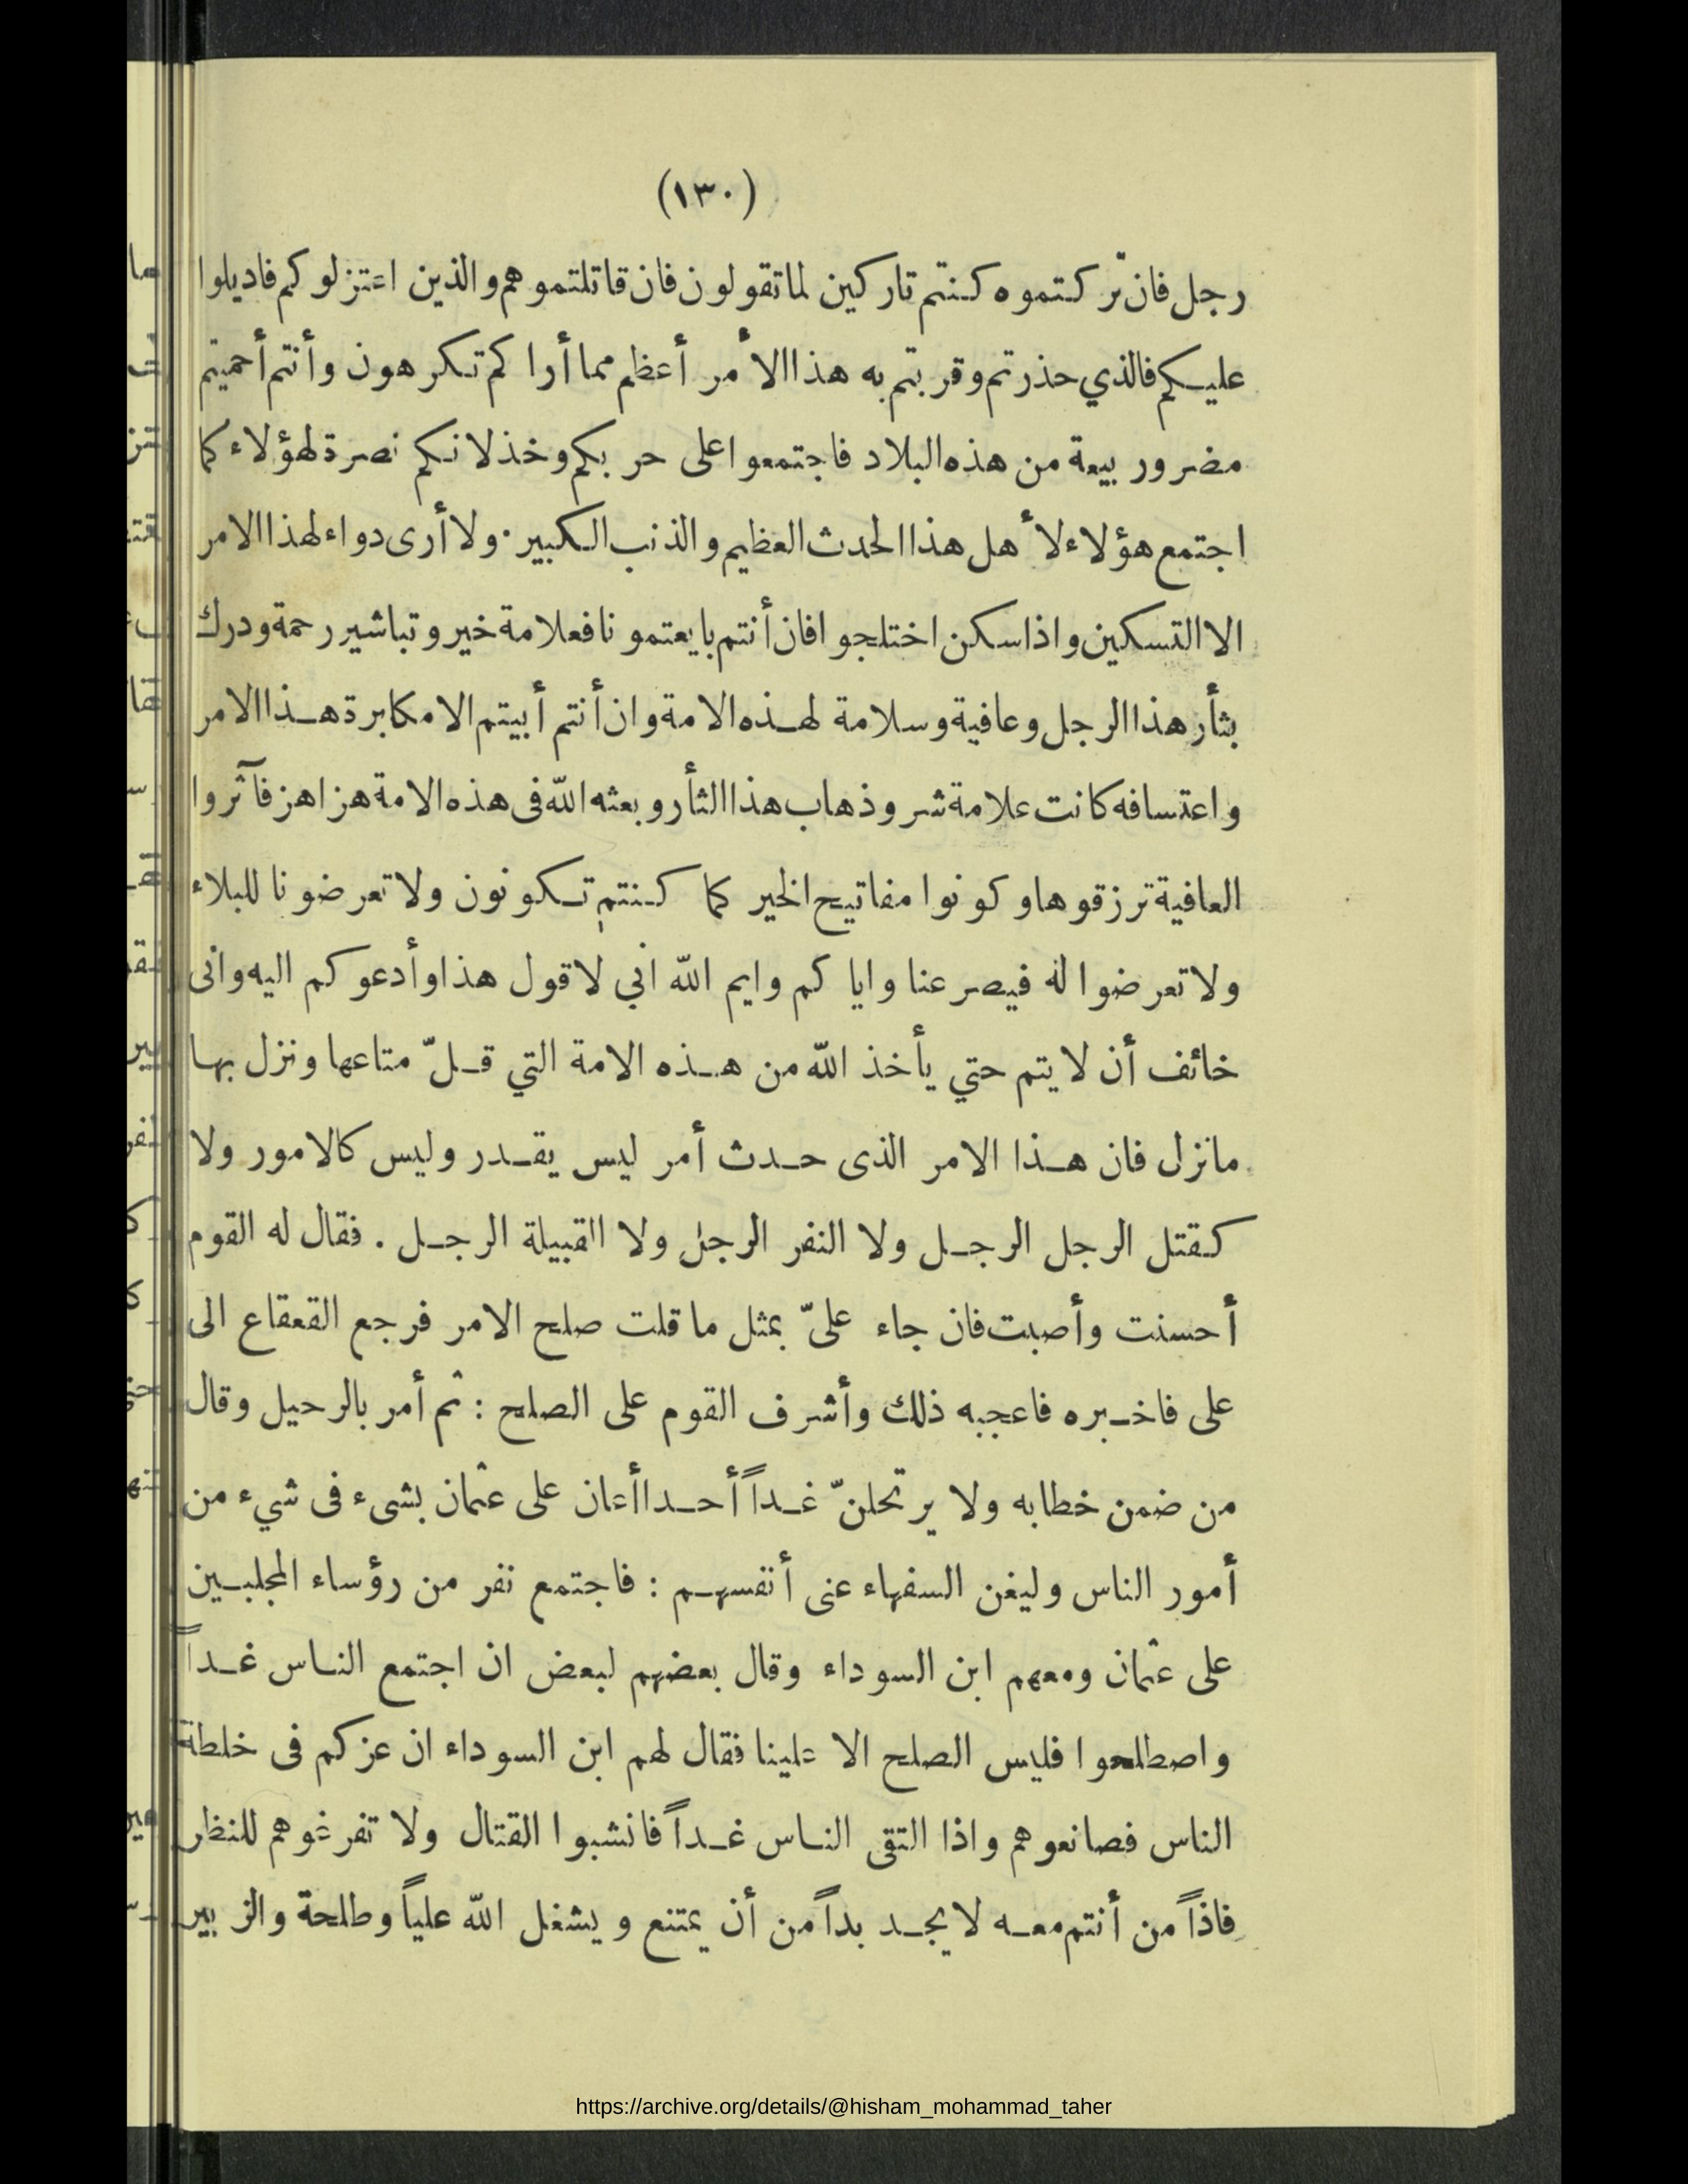 (١٣٠)
رجل فان تركتموه كنتم تاركين لما تقولون فان قاتلتموهم والذين اعتزلوكم فاديلوا
عليكم فالذي حذرتم وقربتم به هذا الأمر أعظم مما أراكم تكرهون وأنتم أحميتم
مضر وربيعة من هذه البلاد فاجتمعوا على حربكم وخذلانكم نصرة لهؤلاء كما
اجتمع هؤلاء لأهل هذا الحدث العظيم والذنب الكبير . ولا أرى دواء لهذا الامر
الا التسكين واذا سكن اختلجوا فان أنتم بايعتمونا فعلامة خير وتباشير رحمة ودرك
بثأر هذا الرجل وعافية وسلامة لهذه الامة وان أنتم أبيتم الا مكابرة هذا الامر
واعتسافه كانت علامة شر وذهاب هذا الثأر وبعثه الله فى هذه الامة هزاهز فآثروا
العافية ترزقوها وكونوا مفاتيح الخير كما كنتم تكونون ولا تعرضونا للبلاء
ولا تعرضوا له فيصرعنا واياكم وايم الله اني لاقول هذا وأدعوكم اليه وانى
خائف أن لا يتم حتي يأخذ الله من هذه الامة التي قلّ متاعها ونزل بها
مانزل فان هذا الامر الذى حدث أمر ليس يقدر وليس كالامور ولا
كقتل الرجل الرجل ولا النفر الرجل ولا القبيلة الرجل . فقال له القوم
أحسنت وأصبت فان جاء علىّ بمثل ما قلت صلح الامر فرجع القعقاع الى
على فاخبره فاعجبه ذلك وأشرف القوم على الصلح : ثم أمر بالرحيل وقال
من ضمن خطابه ولا يرتحلنّ غداً أحد أعان على عثمان بشىء فى شيء من
أمور الناس وليغن السفهاء عنى أنفسهم : فاجتمع نفر من رؤساء المجلبين
على عثمان ومعهم ابن السوداء وقال بعضهم لبعض ان اجتمع الناس غداً
واصطلحوا فليس الصلح الا علينا فقال لهم ابن السوداء ان عزكم فى خلطة
الناس فصانعوهم واذا التقى الناس غداً فانشبوا القتال ولا تفرغوهم للنظر
فاذاً من أنتم معه لا يجد بداً من أن يمتنع ويشغل الله علياً وطلحة والزبير
https://archive.org/details/@hisham_mohammad_taher